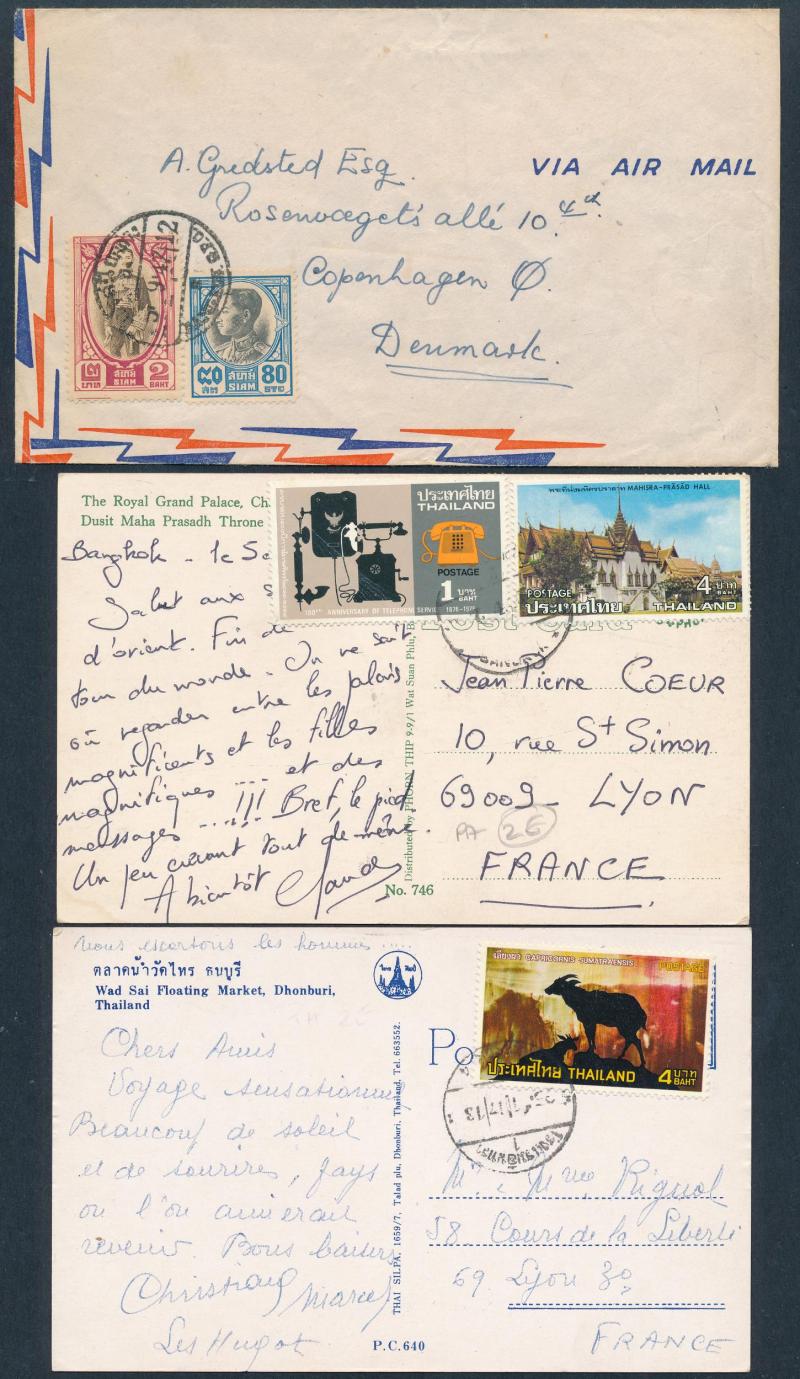 A. Gredsted Esq.
VIA AIR MAIL
Rosenvœgets allé 10. 4th
Copenhagen Ø.
Denmark.
๒ บาท สยาม SIAM 2 BAHT
๘๐ สต. สยาม SIAM 80 STG
The Royal Grand Palace, Ch
Dusit Maha Prasadh Throne
ประเทศไทย
THAILAND
POSTAGE
1 บาท BAHT
100TH ANNIVERSARY OF TELEPHONE SERVICE 1876-1976
พระที่นั่งมหิศรปราสาท MAHISRA-PRASAD HALL
POSTAGE
ประเทศไทย THAILAND
4 บาท BAHT
Bangkok - le
Salut aux
d'orient. Fin de
tour du monde. On ne sait
où regarder entre les palais
magnificents et les filles
magnifiques .... et des
messages ......!!! Bref, le pied
Un peu crevant tout de même.
A bientôt
Distributed by PHORN THIP 9-9/1 Wat Suan Phlu,
No. 746
Jean Pierre COEUR
10, rue St Simon
69009 - LYON
2€
FRANCE
Nous escortons les hommes .....
ตลาดน้ำวัดไทร ธนบุรี
Wad Sai Floating Market, Dhonburi,
Thailand
เลียงผา CAPRICORNIS SUMATRAENSIS
POSTAGE
ประเทศไทย THAILAND 4 บาท BAHT
Po
Chers Amis
Voyage sensationnel
Beaucoup de soleil
et de sourires, pays
où l'on aimerait
revenir. Bons baisers
Christiane
Marcel
Les Hugot
THAI SILPA, 1659/7, Talad plu, Dhonburi, Thailand. Tel. 663552.
P.C.640
Mr & Mme Rignol
58 Cours de la Liberté
69 Lyon 3e
FRANCE